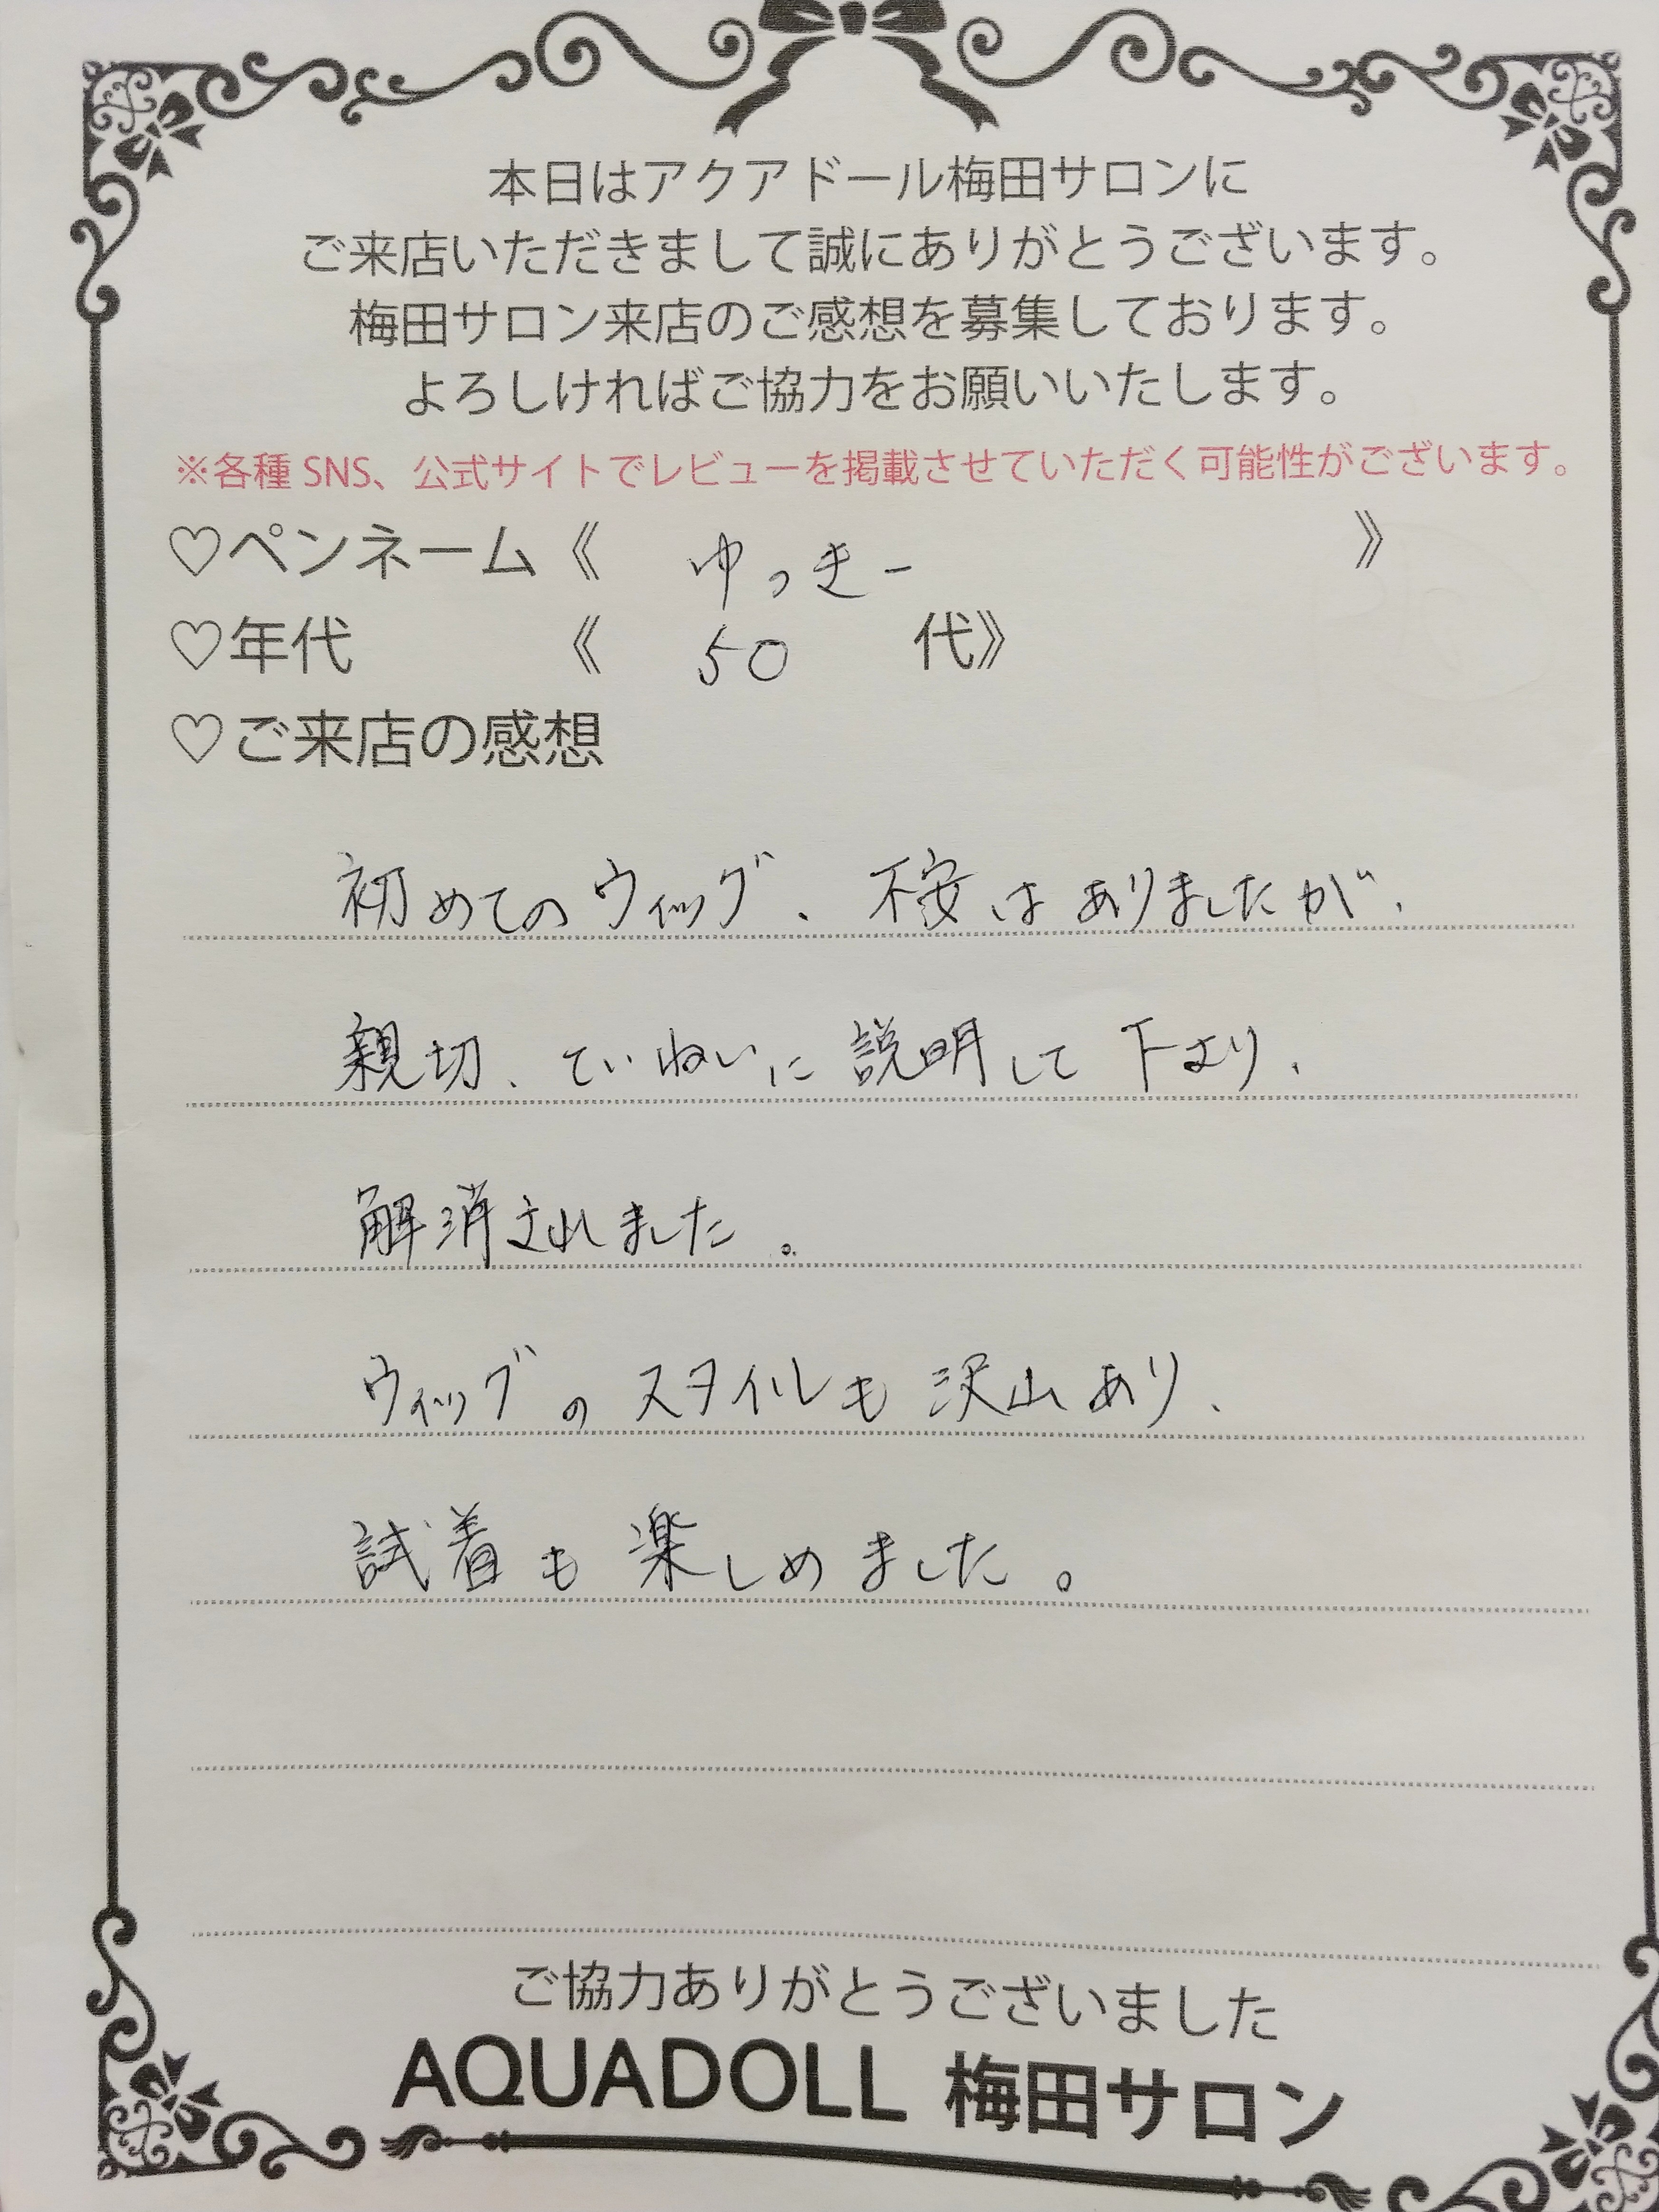 本日はアクアドール梅田サロンに
ご来店いただきまして誠にありがとうございます。
梅田サロン来店のご感想を募集しております。
よろしければご協力をお願いいたします。
※各種SNS、公式サイトでレビューを掲載させていただく可能性がございます。
♡ペンネーム《 ゆっきー 》
♡年代 《 50 代》
♡ご来店の感想
初めてのウィッグ、不安はありましたが、
親切、ていねいに説明して下より、
解消されました。
ウィッグのスタイルも沢山あり、
試着も楽しめました。
ご協力ありがとうございました
AQUADOLL 梅田サロン